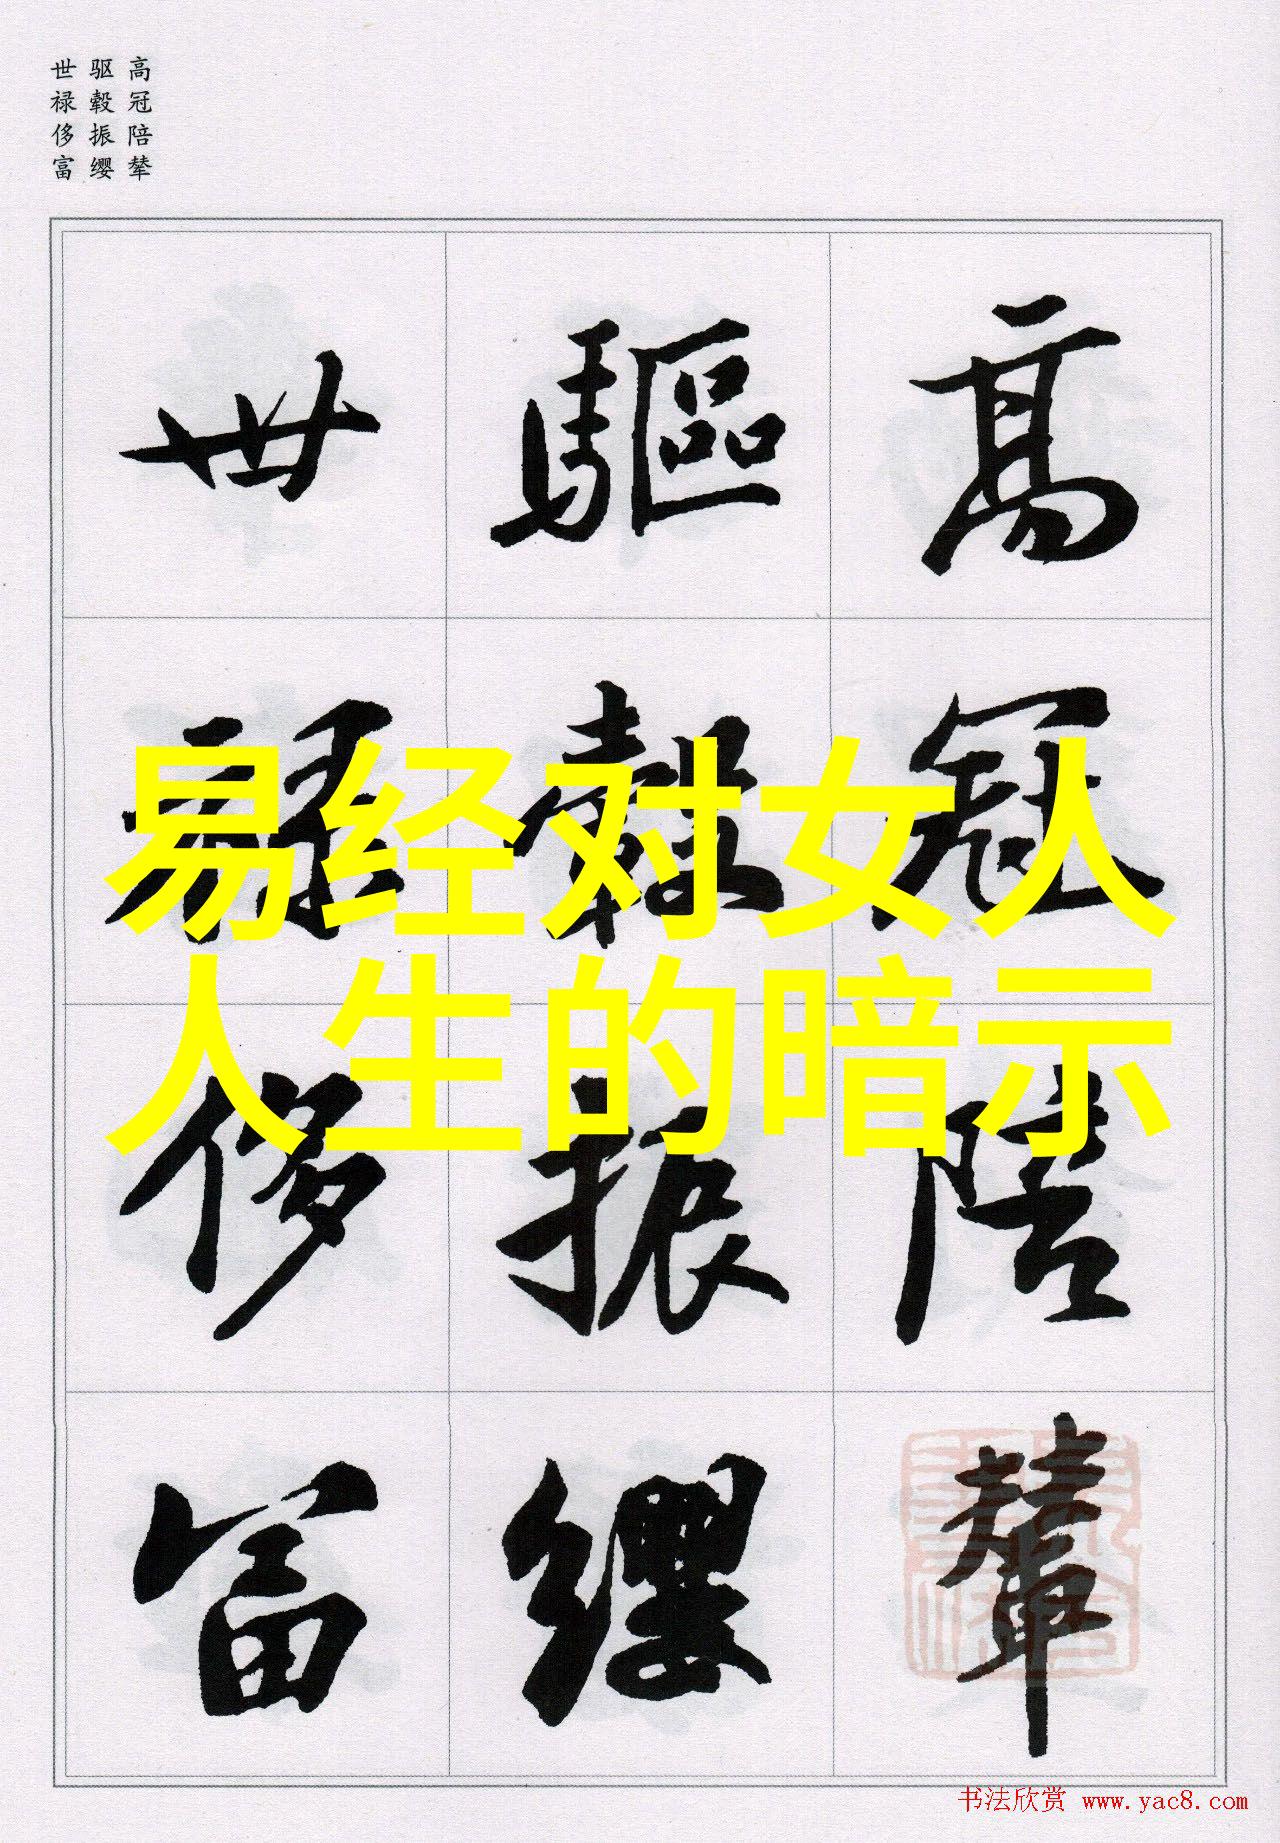 高冠陪辇
驱毂振缨
世禄侈富
易经对女人
人生的暗示
高冠陪輦
驅轂振纓
世禄侈富
书法欣赏 www.yac8.com